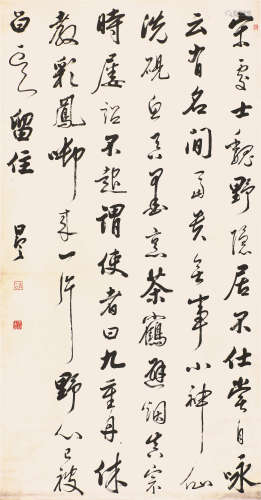 宋處士魏野隱居不仕嘗自詠
云有名閒富貴無事小神仙
洗硯魚吞墨烹茶鶴避煙真宗
時屢詔不起謂使者曰九重丹休
教彩鳳啣來一片野心已被
白雲留住